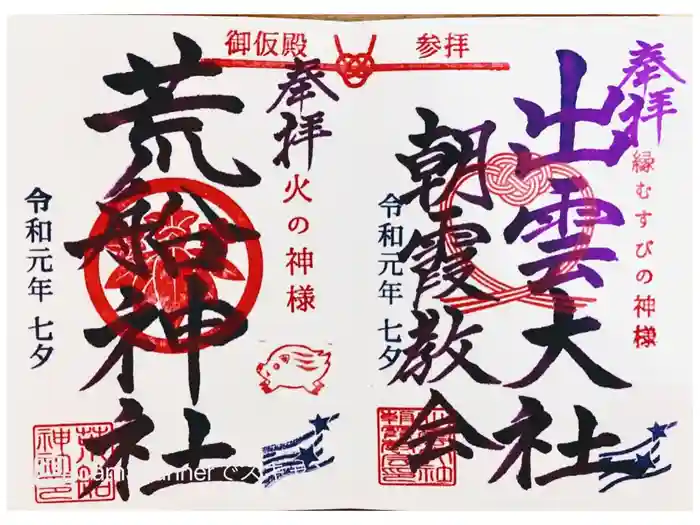 奉拝
縁むすびの神様
出雲大社
朝霞教会
令和元年 七夕
御仮殿 参拝
奉拝
火の神様
荒船神社
令和元年 七夕